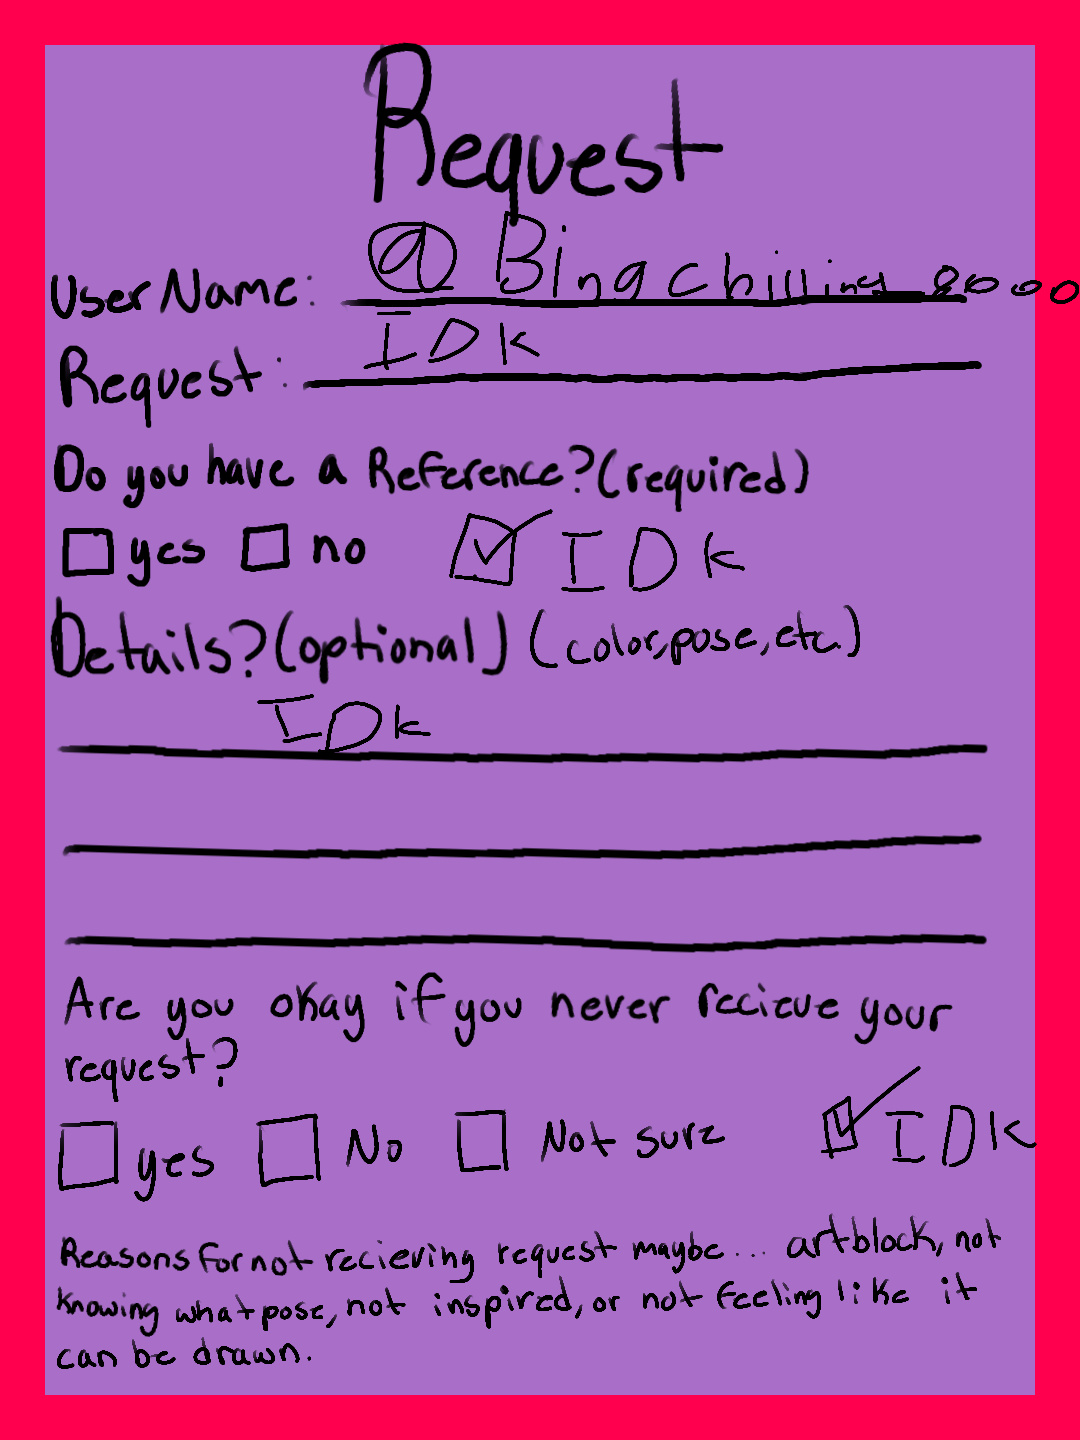 Request
UserName: @Bingchilling_8000
Request: IDK
Do you have a Reference?(required)
yes no IDK
Details?(optional) (color,pose,etc.)
IDK
Are you okay if you never recieve your
request?
yes No Not sure IDK
Reasons for not recieving request maybe... artblock, not
knowing what pose, not inspired, or not feeling like it
can be drawn.